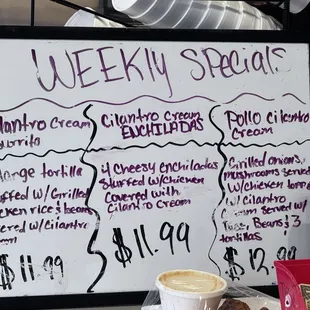 WEEKLY SPecials
lantro Cream
urrito
arge tortilla
ffed w/Grilled
cken rice & beans
ered w/cilantro
$11.99
Cilantro Cream
ENCHILADAS
4 Cheesy enchiladas
Stuffed w/chicken
Covered with
Cilantro Cream
$11.99
Pollo cilantro
Cream
Grilled onions,
mushrooms served
w/chicken topped
w/cilantro
Cream served w/
Beans & 3
tortillas
$12.99